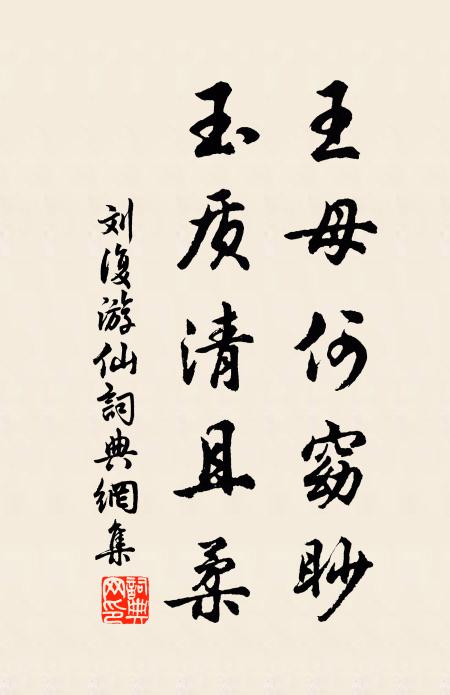 王母何窈眇
玉质清且柔
刘復游仙詞典網集
詞典网印